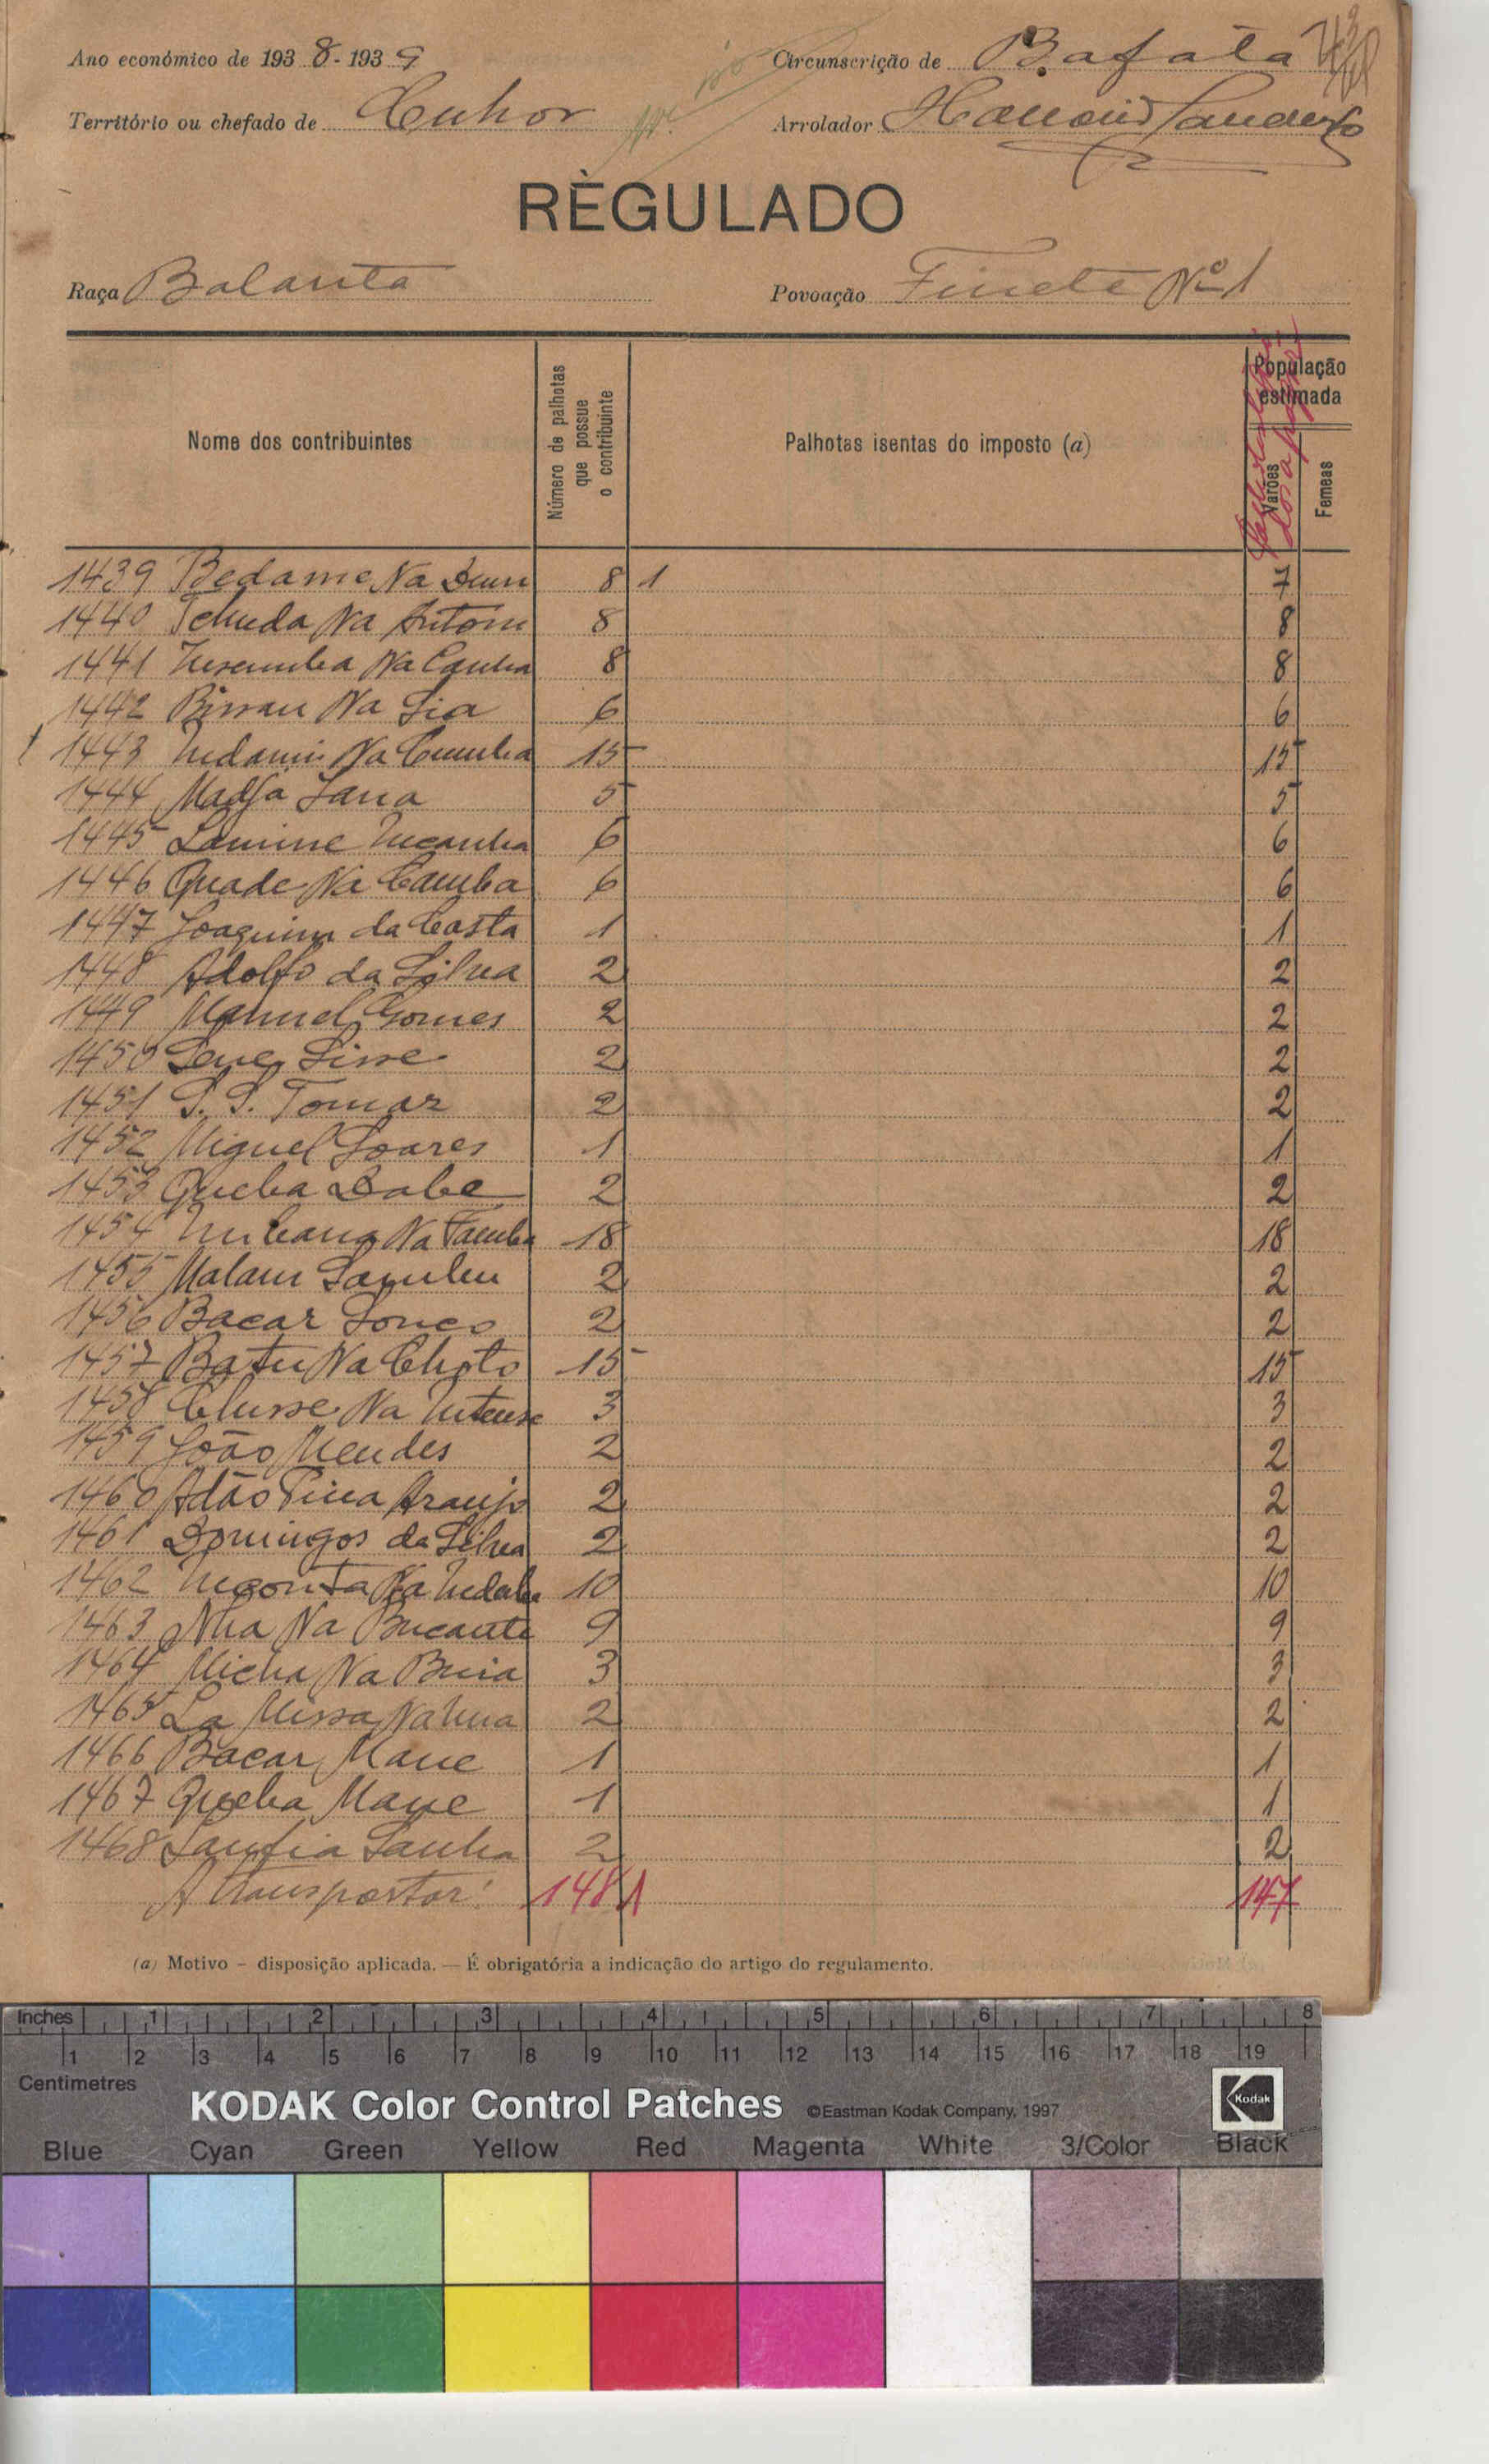 Ano económico de 1938-1939
Circunscrição de Bafatá
Território ou chefado de Cuhor
Arrolador
RÈGULADO
Raça Balanta
Povoação Finete Nº 1
Nome dos contribuintes
Número de palhotas que possue o contribuinte
Palhotas isentas do imposto (a)
População estimada
Varões
Femeas
1439 Bedame Na 8 1 7
1440 Tchuda Na Antoni 8 8
1441 Na Canha 8 8
1442 Bissau Na Sia 6 6
1443 Na Cumba 15 15
1444 Sana 5 5
1445 Lamine 6 6
1446 Quade Na Camba 6 6
1447 Joaquim da Costa 1 1
1448 Adolfo da Silva 2 2
1449 Manuel Gomes 2 2
1450 Sisse 2 2
1451 S. S. Tomar 2 2
1452 Miguel Soares 1 1
1453 Queba Dabe 2 2
1454 Na Famba 18 18
1455 Malam Sambu 2 2
1456 Bacar Sonco 2 2
1457 Batu Na Choto 15 15
1458 Na 3 3
1459 João Mendes 2 2
1460 Adão Pina Araujo 2 2
1461 Domingos da Silva 2 2
1462 Na 10 10
1463 Nha Na 9 9
1464 Micha Na Buia 3 3
1465 La Missa Na 2 2
1466 Bacar Mane 1 1
1467 Queba Mane 1 1
1468 Sanha 2 2
A transportar: 148 1 147
(a) Motivo – disposição aplicada. — É obrigatória a indicação do artigo do regulamento.
Inches 1 2 3 4 5 6 7 8
1 2 3 4 5 6 7 8 9 10 11 12 13 14 15 16 17 18 19
Centimetres
KODAK Color Control Patches ©Eastman Kodak Company, 1997 Kodak
Blue Cyan Green Yellow Red Magenta White 3/Color Black